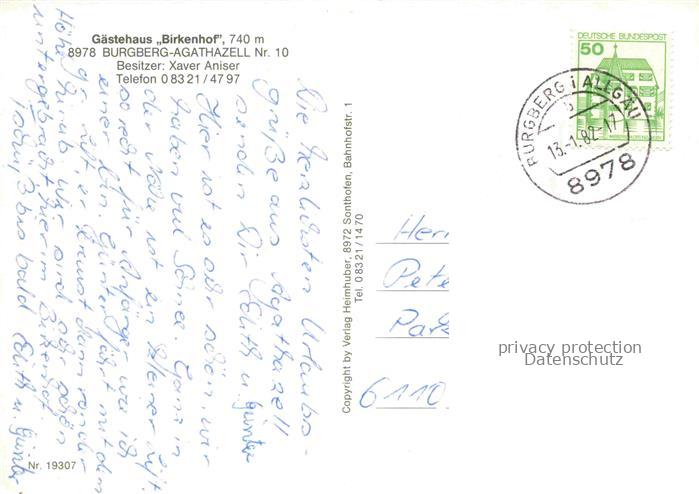 Gästehaus „Birkenhof", 740 m
8978 BURGBERG-AGATHAZELL Nr. 10
Besitzer: Xaver Aniser
Telefon 0 83 21 / 47 97
Die herzlichsten Urlaubs-
grüße aus Agathazell
senden Dir Edith u. Günter
Hier ist es sehr schön, wir
haben viel Schnee. Ganz in
der Nähe ist ein kleiner Lift
so recht für Anfänger wie ich
einer bin. Günter fährt mit dem
gr. Lift, er kommt dann von der
Höhe runter. Wir sind sehr schön
untergebracht hier im Birkenhof.
Tschüß bis bald Edith u. Günter
Nr. 19307
Copyright by Verlag Heimhuber, 8972 Sonthofen, Bahnhofstr. 1
Tel. 0 83 21 / 14 70
DEUTSCHE BUNDESPOST
50
BURGBERG i ALLGÄU
b
13.-1.82-17
8978
Herr
Pete
6110
privacy protection
Datenschutz